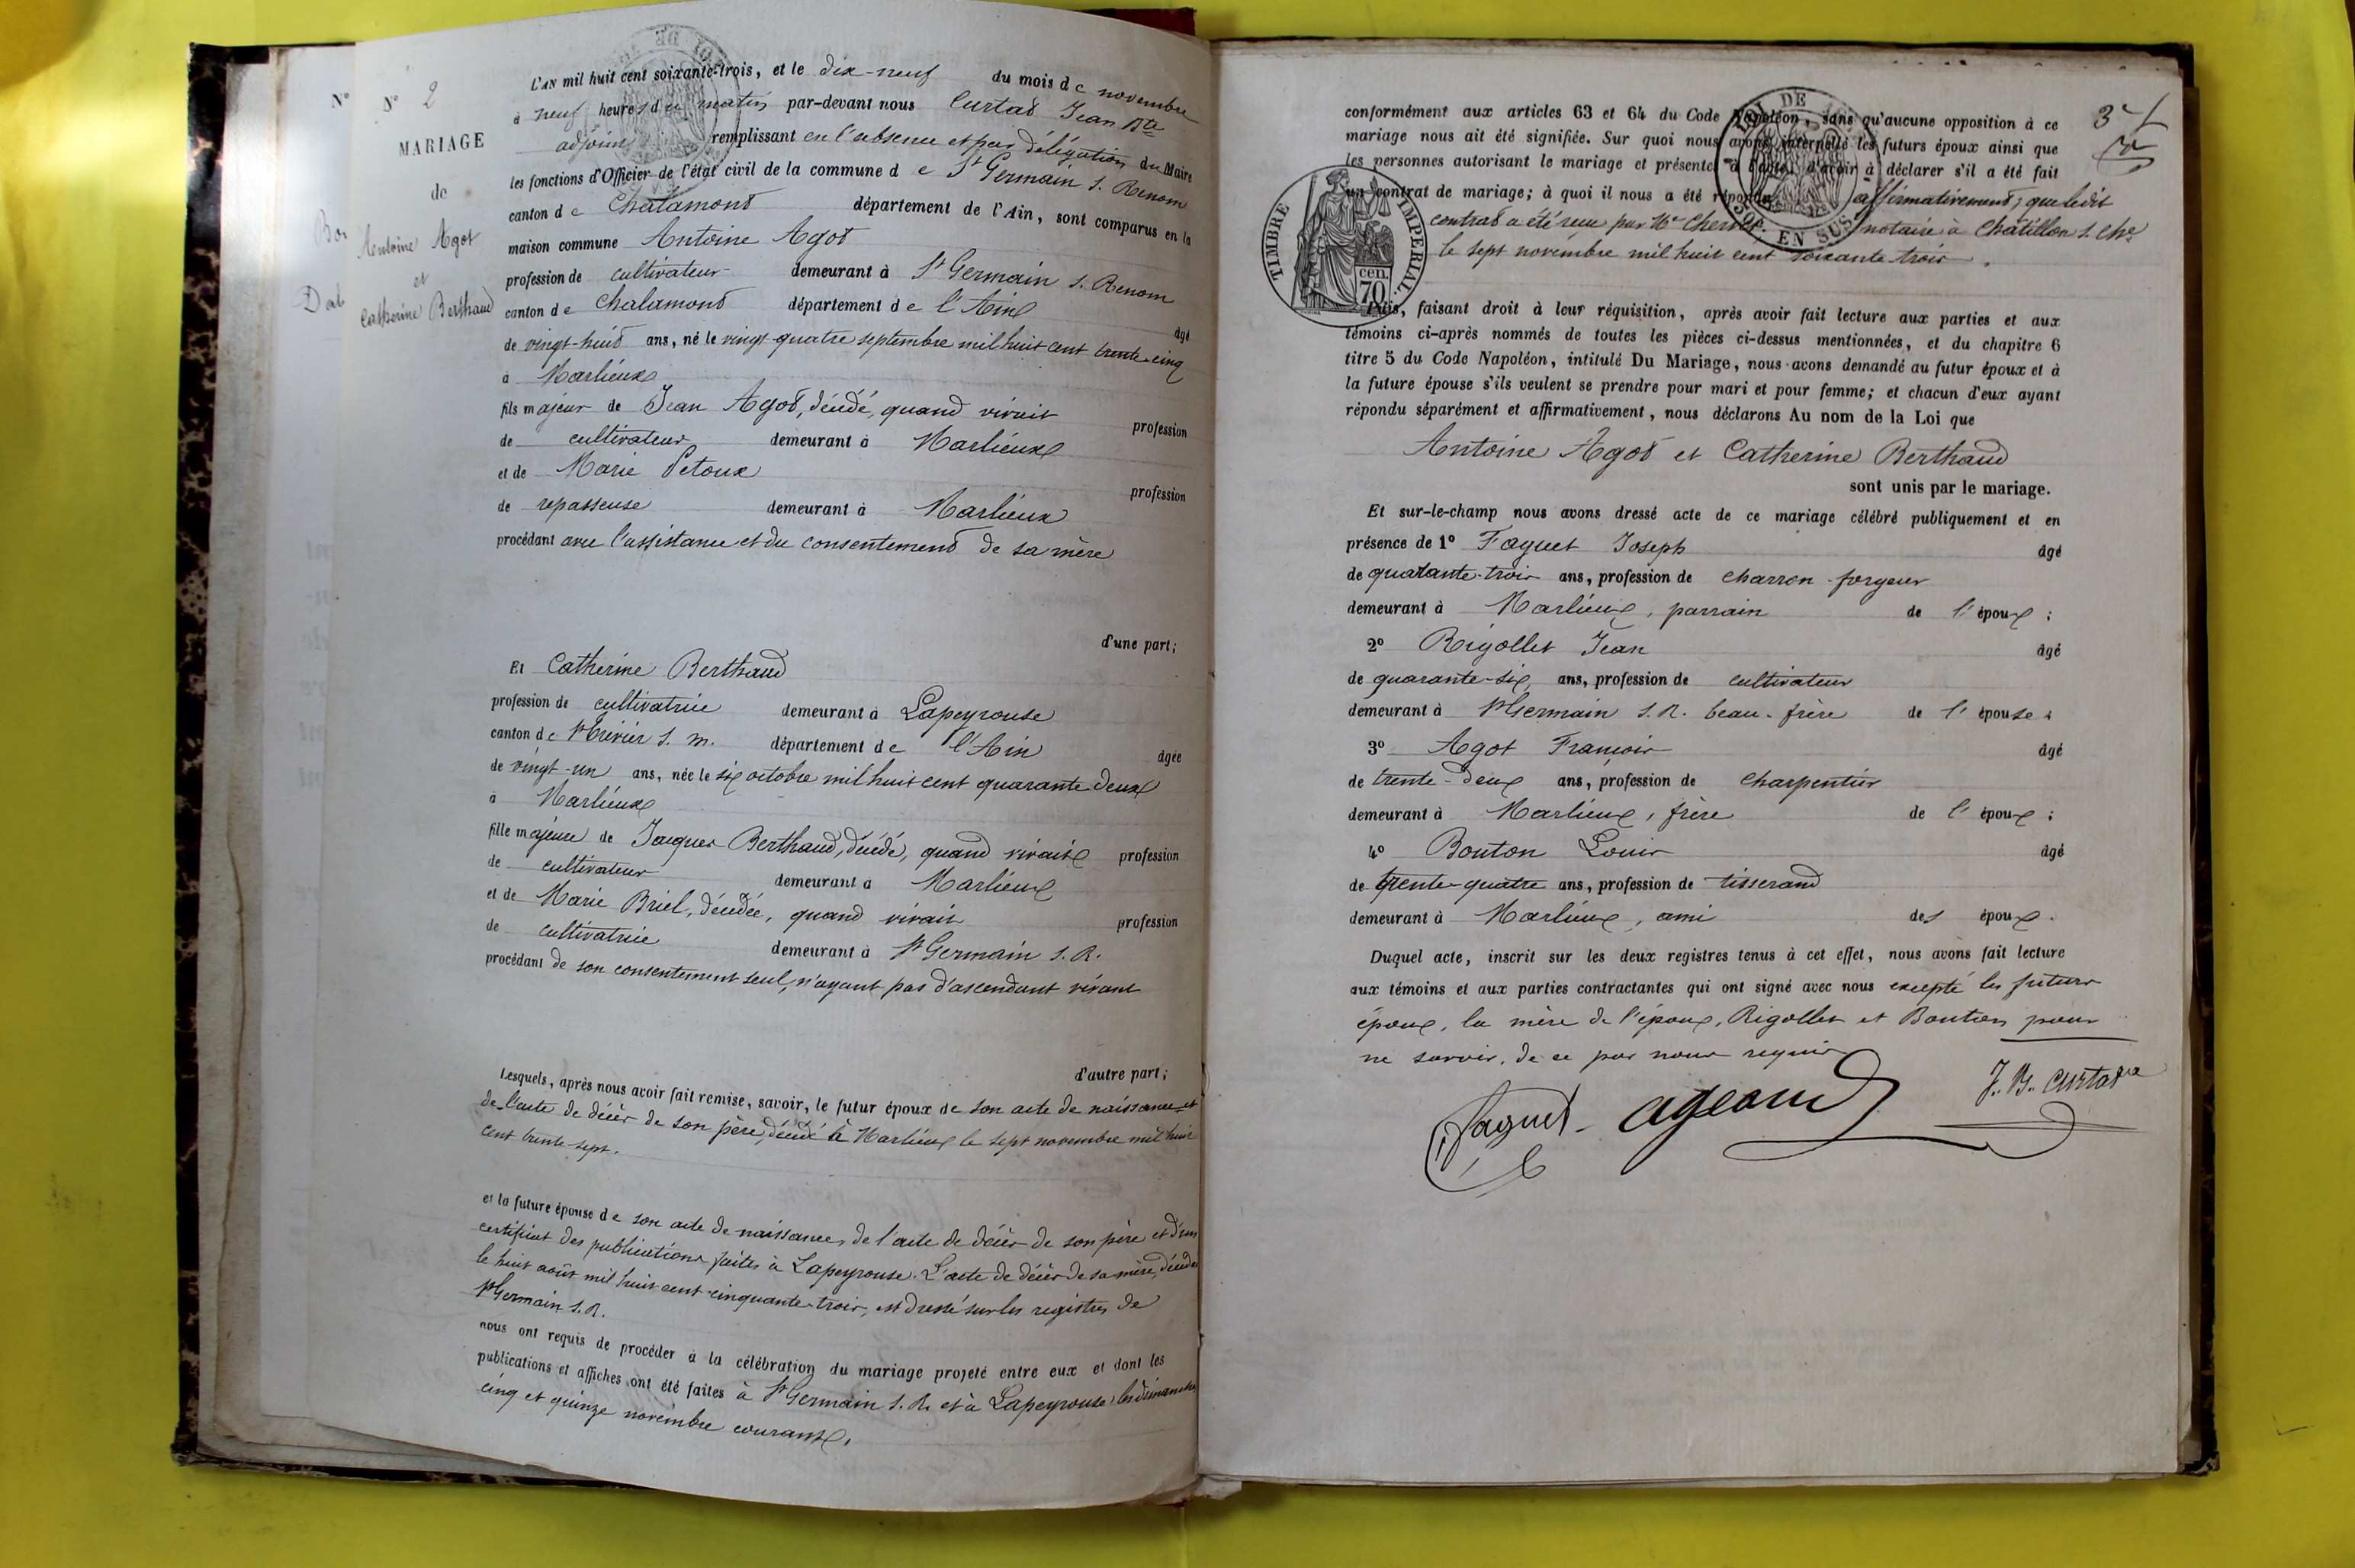 N° N° 2
MARIAGE
de
Antoine Agot
et
Catherine Berthaud
L'AN mil huit cent soixante-trois, et le dix-neuf du mois de novembre
à neuf heures du matin par-devant nous Curtat Jean Bte
adjoint remplissant en l'absence et par délégation du Maire
les fonctions d'Officier de l'état civil de la commune de St Germain s. Renom
canton de Chalamont département de l'Ain, sont comparus en la
maison commune Antoine Agot
profession de cultivateur demeurant à St Germain s. Renom
canton de Chalamont département de l'Ain âgé
de vingt-huit ans, né le vingt-quatre septembre mil huit cent trente-cinq
à Marlieux
fils majeur de Jean Agot, décédé, quand vivait profession
de cultivateur demeurant à Marlieux
et de Marie Petoux profession
de repasseuse demeurant à Marlieux
procédant avec l'assistance et du consentement de sa mère
d'une part;
Et Catherine Berthaud
profession de cultivatrice demeurant à Lapeyrouse
canton de St Trivier s. m. département de l'Ain âgée
de vingt-un ans, née le six octobre mil huit cent quarante-deux
à Marlieux
fille majeure de Jacques Berthaud, décédé, quand vivait profession
de cultivateur demeurant à Marlieux
et de Marie Briel, décédée, quand vivait profession
de cultivatrice demeurant à St Germain s. R.
procédant de son consentement seul, n'ayant pas d'ascendant vivant
d'autre part;
Lesquels, après nous avoir fait remise, savoir, le futur époux de son acte de naissance et
de l'acte de décès de son père, décédé à Marlieux le sept novembre mil huit
cent trente-sept.
et la future épouse de son acte de naissance, de l'acte de décès de son père et d'un
certificat des publications faites à Lapeyrouse. L'acte de décès de sa mère, décédée
le huit août mil huit cent cinquante-trois, est dressé sur les registres de
St Germain s. R.
nous ont requis de procéder à la célébration du mariage projeté entre eux et dont les
publications et affiches ont été faites à St Germain s. R. et à Lapeyrouse, les dimanches
cinq et quinze novembre courant.
conformément aux articles 63 et 64 du Code Napoléon, sans qu'aucune opposition à ce
mariage nous ait été signifiée. Sur quoi nous avons interpellé les futurs époux ainsi que
les personnes autorisant le mariage et présentes à l'acte, d'avoir à déclarer s'il a été fait
un contrat de mariage; à quoi il nous a été répondu affirmativement, que ledit
contrat a été reçu par Me notaire à Châtillon s. Che
le sept novembre mil huit cent soixante-trois.
TIMBRE IMPERIAL
70 cen.
LOI DE
50e EN SUS
Puis, faisant droit à leur réquisition, après avoir fait lecture aux parties et aux
témoins ci-après nommés de toutes les pièces ci-dessus mentionnées, et du chapitre 6
titre 5 du Code Napoléon, intitulé Du Mariage, nous avons demandé au futur époux et à
la future épouse s'ils veulent se prendre pour mari et pour femme; et chacun d'eux ayant
répondu séparément et affirmativement, nous déclarons Au nom de la Loi que
Antoine Agot et Catherine Berthaud
sont unis par le mariage.
Et sur-le-champ nous avons dressé acte de ce mariage célébré publiquement et en
présence de 1° Faguet Joseph âgé
de quarante-trois ans, profession de charron-forgeur
demeurant à Marlieux, parrain de l'époux;
2° Rigollet Jean âgé
de quarante-six ans, profession de cultivateur
demeurant à St Germain s. R. beau-frère de l'épouse;
3° Agot François âgé
de trente-deux ans, profession de charpentier
demeurant à Marlieux, frère de l'époux;
4° Bouton Louis âgé
de trente-quatre ans, profession de tisserand
demeurant à Marlieux, ami des époux.
Duquel acte, inscrit sur les deux registres tenus à cet effet, nous avons fait lecture
aux témoins et aux parties contractantes qui ont signé avec nous excepté les futurs
époux, la mère de l'époux, Rigollet et Bouton pour
ne savoir, de ce par nous requis
Faguet ageand J. B. Curtat